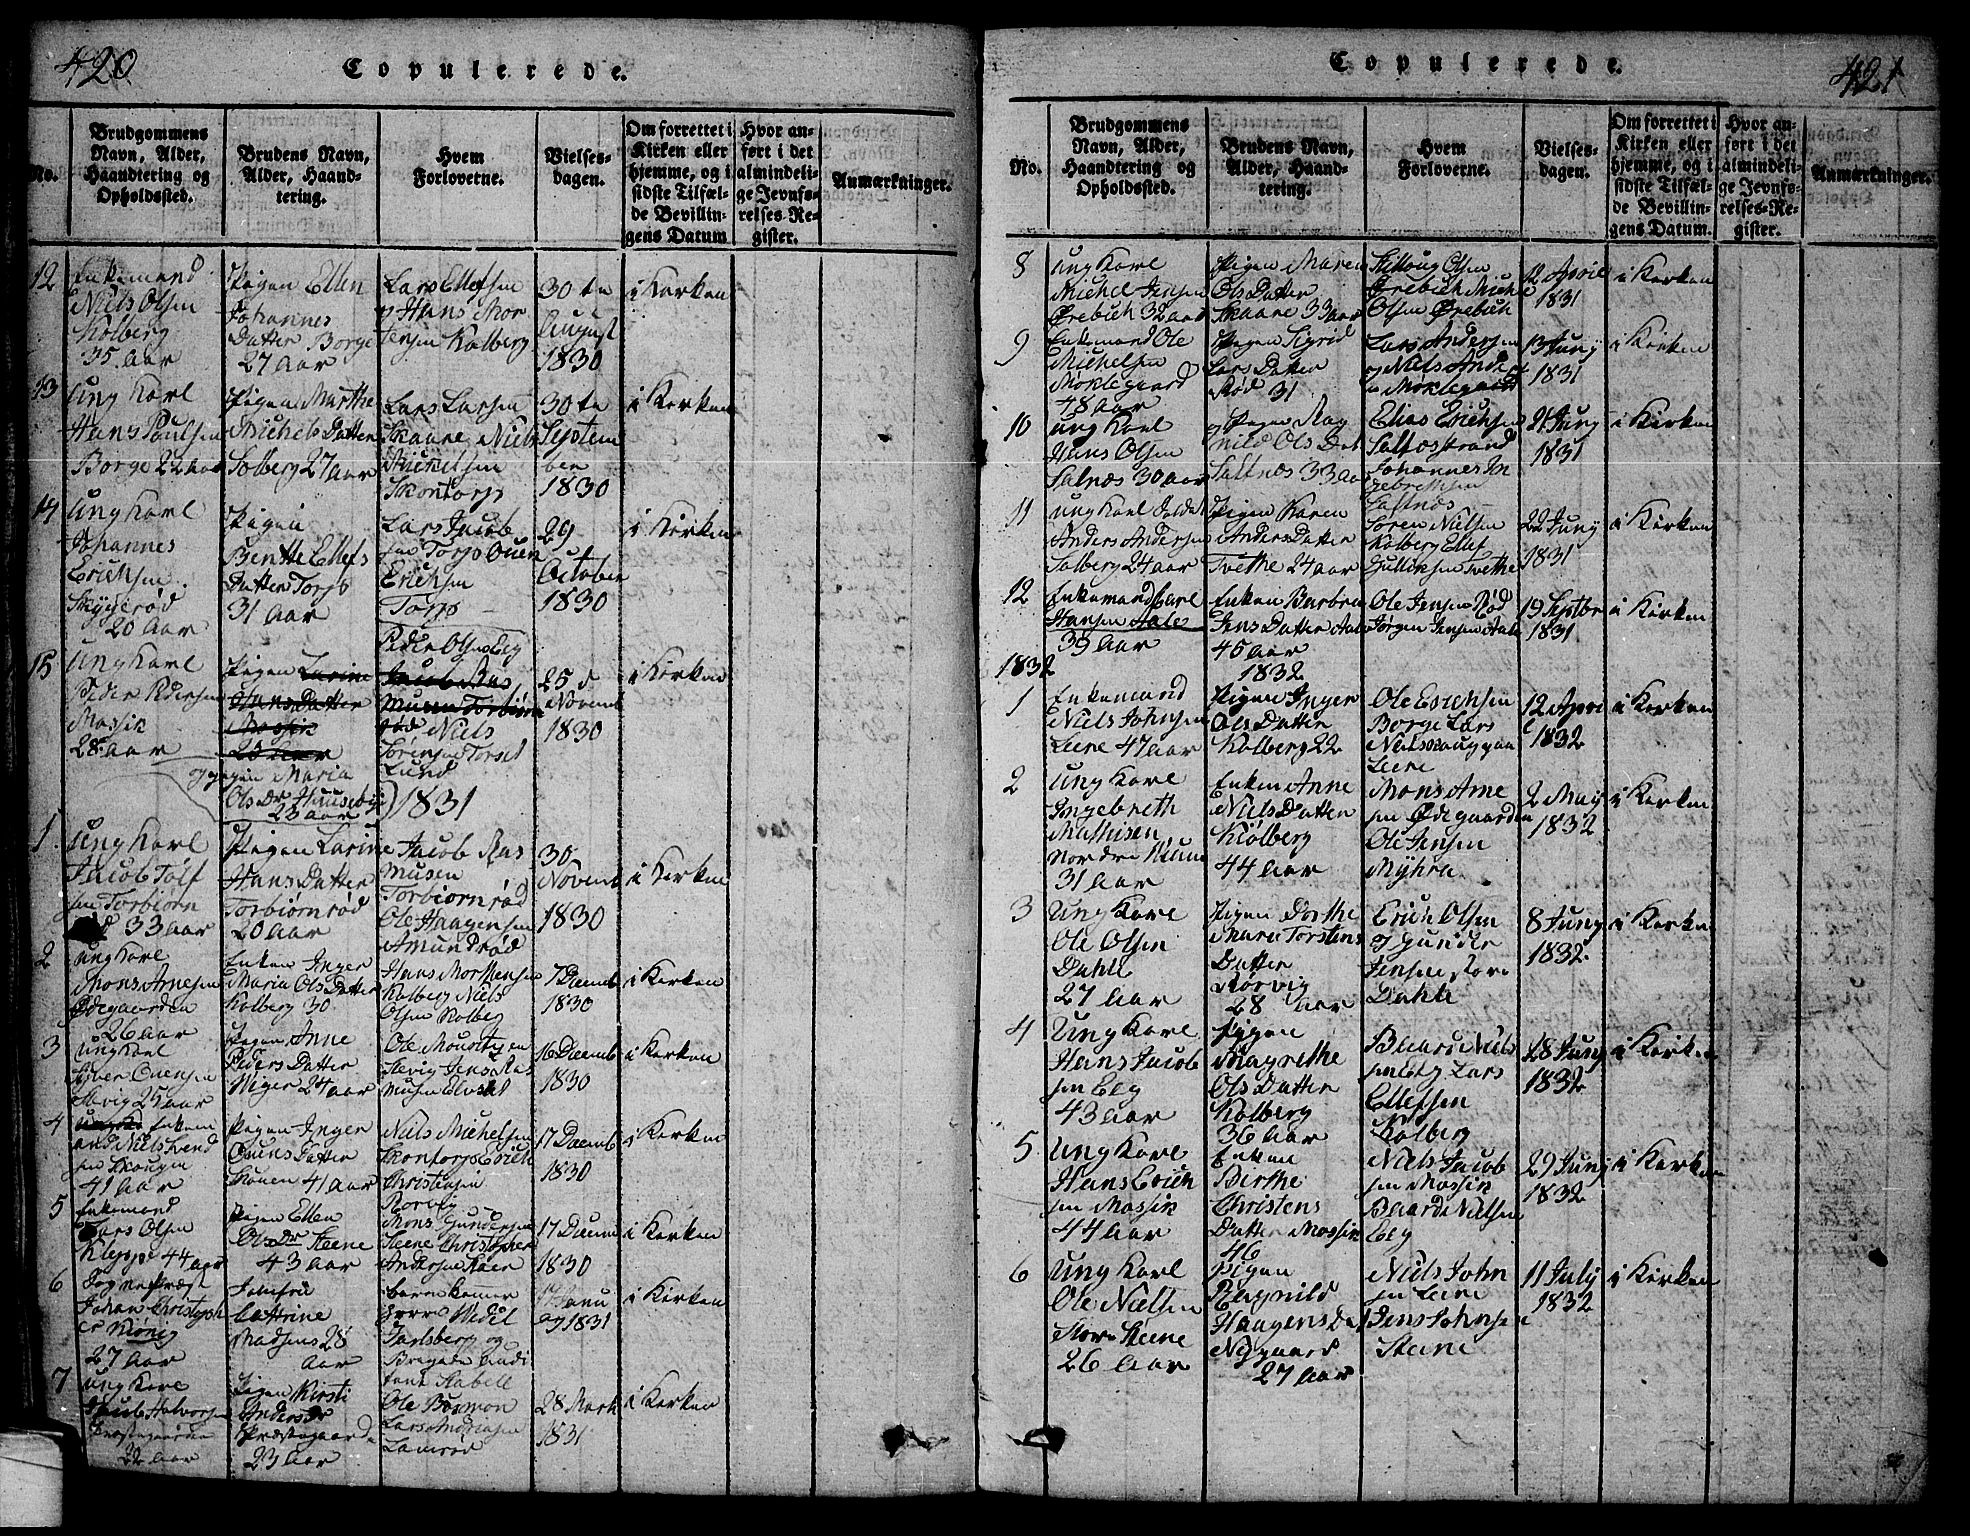 420
Copulerede.
No.
Brudgommens
Navn, Alder,
Haandtering og
Opholdssted.
Brudens Navn,
Alder, Haand-
tering.
Hvem
Forloverne.
Vielses-
dagen.
Om forrettet i
Kirken eller
hjemme, og i
sidste Tilfæl-
de Bevillin-
gens Datum
Hvor an-
ført i det
almindeli-
ge Jevnfø-
relses-Re-
gister.
Anmærkninger.
12
Enkemand
Niels Olsen
Kolberg
35. aar
Pigen Ellen
Johannes
Datter Borge
27 aar
Lars Ellefsen
og Hans Mor
tensen Kolberg
30te
August
1830
i Kirken
13
Ung Karl
Hans Paulsen
Borge 22 aar
Pigen Marthe
Michels Datter
Solberg 27 aar
Lars Larsen
Skaare Niels
Michelsen
Skontorp
30te
Septem
ber
1830
i Kirken
14
Ung Karl
Johannes
Erichsen
Skyggerød
20 aar
Pigen
Benthe Ellefs
Datter Torp
31 aar
Lars Jacob
sen Torp Ouen
Erichsen
Torp
29
October
1830
i Kirken
15
Ung Karl
Peder Pedersen
Mossik
28 aar
Pigen Larine
Hans Datter
Mossik
20 aar
og pigen Maria
Ols Dr Huusebye
23 aar
Peder Olsen Eeg
Jacob Ras
musen Torbiørn
rød Niels
Sørensen Torset
Lund
25 d
Novemb
1830
i Kirken
1831
1.
Ung Karl
Jacob Tolf
sen Torbiørn
rød 33 aar
Pigen Larine
Hans Datter
Torbiørnrød
20 aar
Jacob Ras
musen
Torbiørnrød
Ole Haagensen
Amundrød
30
Novemb
1830
i Kirken
2
Ung Karl
Mons Arnesen
Ødegaarden
26 aar
Enken Inger
Maria Ols Datter
Kolberg 30
Hans Morthensen
Kolberg Niels
Olsen Kolberg
7 Decemb
1830
i Kirken
3
Ung Karl
Syver Ouensen
25 aar
Pigen Anne
Peders Datter
24 aar
Ole
Jens Ras
musen
16 Decemb
1830
i Kirken
4
Enkem
and Niels Svend
sen Skougen
41 aar
Pigen Inger
Ouens Datter
Skouen 41 aar
Niels Michelsen
Skontorp Erich
Christensen
Rørvig
17 Decemb
1830
i Kirken
5
Enkemand
Lars Olsen
Kleppe 44 aar
Pigen Ellen
Ols Dr Steene
43 aar
Mons Gundersen
Steene Christopher
Andersen Kiær
17 Decemb
1830
i Kirken
6
Sogne Præst
Johan Christoph
er Kiønig
27 aar
Jomfru
Cattrine
Madsens 28
aar
Herr Wedel
Jarlsberg og
Brigade Audi
teur Stabell
17 Janu
ary 1831
i Kirken
7
Ung Karl
Jacob Halvorsen
Præstegaarden
22 aar
Pigen Kirsti
Anders Dr
Præstegaard
23 aar
Ole Bormon
Lars Andersen
Lamrød
28 Mark
1831
i Kirken
Copulerede.
421
No.
Brudgommens
Navn, Alder,
Haandtering og
Opholdssted.
Brudens Navn,
Alder, Haand-
tering.
Hvem
Forloverne.
Vielses-
dagen.
Om forrettet i
Kirken eller
hjemme, og i
sidste Tilfæl-
de Bevillin-
gens Datum.
Hvor an-
ført i det
almindeli-
ge Jevnfø-
relses-Re-
gister.
Anmærkninger.
8
Ung Karl
Michel Jensen
Ørebich 32 aar
Pigen Maren
Ols Datter
Skaare 33 aar
Olsen
Ørebich Michel
Olsen Ørebich
12 April
1831
i Kirken
9
Enkemand Ole
Michelsen
Møklegaard
48 aar
Pigen Sigrid
Lars Datter
Rød 31
Lars Andersen
og Niels Anders
en Møklegaard
13 Juny
1831
i Kirken
10
Ung Karl
Hans Olsen
Salnæs 30 aar
Pigen Rag
nild Ols Dat
Saltnæs 33 aar
Elias Erichsen
Saltnæsstrand
Johannes In
gebrethsen
Saltnæs
21 Juny
1831
i Kirken
11
Ung Karl Soldat
Anders Andersen
Solberg 24 aar
Pigen Karen
Anders Datter
Tvethe 24 aar
Søren Nielsen
Kolberg Ellef
Gulliksen Tvethe
22 Juny
1831
i Kirken
12
Enkemand Carl
Hansen Aale
39 aar
Enken Barbra
Jens Datter Aale
45 aar
Ole Jensen Rød
Jørgen Jensen Aale
19 Septbr
1831
i Kirken
1832
1832
1
Enkemand
Niels Johnsen
Leene 47 aar
Pigen Inger
Ols Datter
Kolberg 22
Ole Erichsen
Borge Lars
Nielsen
Leene
12 Apri
l
1832
i Kirken
2
Ung Karl
Ingebreth
Mathisen
Nordre Huun
31 aar
Enken Anne
Niels Datter
Kiølberg
44 aar
Mons Arne
sen Ødegaarden
Ole Jensen
Myhra
2 May
1832
i Kirken
3
Ung Karl
Ole Olsen
Dahle
27 aar
Pigen Dorthe
Maria Torstens
Datter
Rørvig
28 aar
Erich Olsen
og Gunder
Jensen store
Dahle
8 Juny
1832
i Kirken
4
Ung Karl
Hans Jacob
sen Eeg
43 aar
Pigen
Magrethe
Ols Datter
Kolberg
36 aar
Baard Niels
sen Eeg Lars
Ellefsen
Kolberg
28 Juny
1832
i Kirken
5.
Ung Karl
Hans Erich
sen Mossik
44 aar
Enken
Birthe
Christens
Datter Mossik
46
Niels Jacob
sen Mossik
Baard Nielsen
Eeg
29 Juny
1832
i Kirken
6
Ung Karl
Ole Nielsen
Store Steene
26 aar
Pigen
Ragnild
Haagens Dat
Nygaard
27 aar
Niels John
sen Leene
Jens Johnsen
Steene
11 July
1832
i Kirken